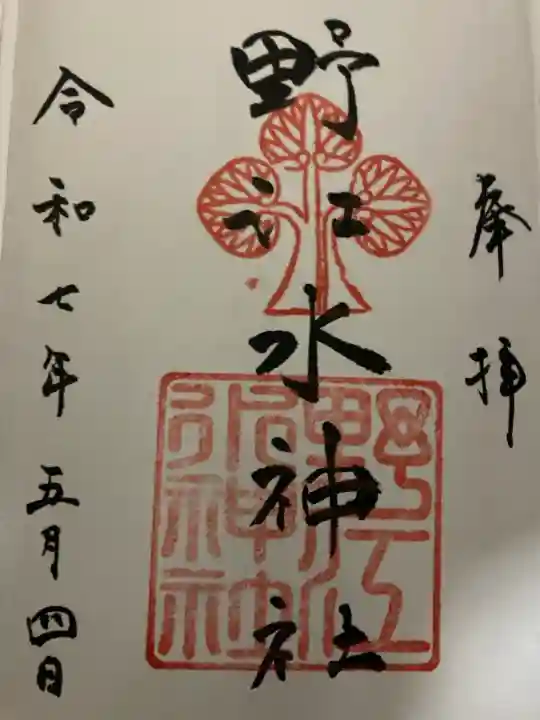 奉拝
野江水神社
令和七年五月四日